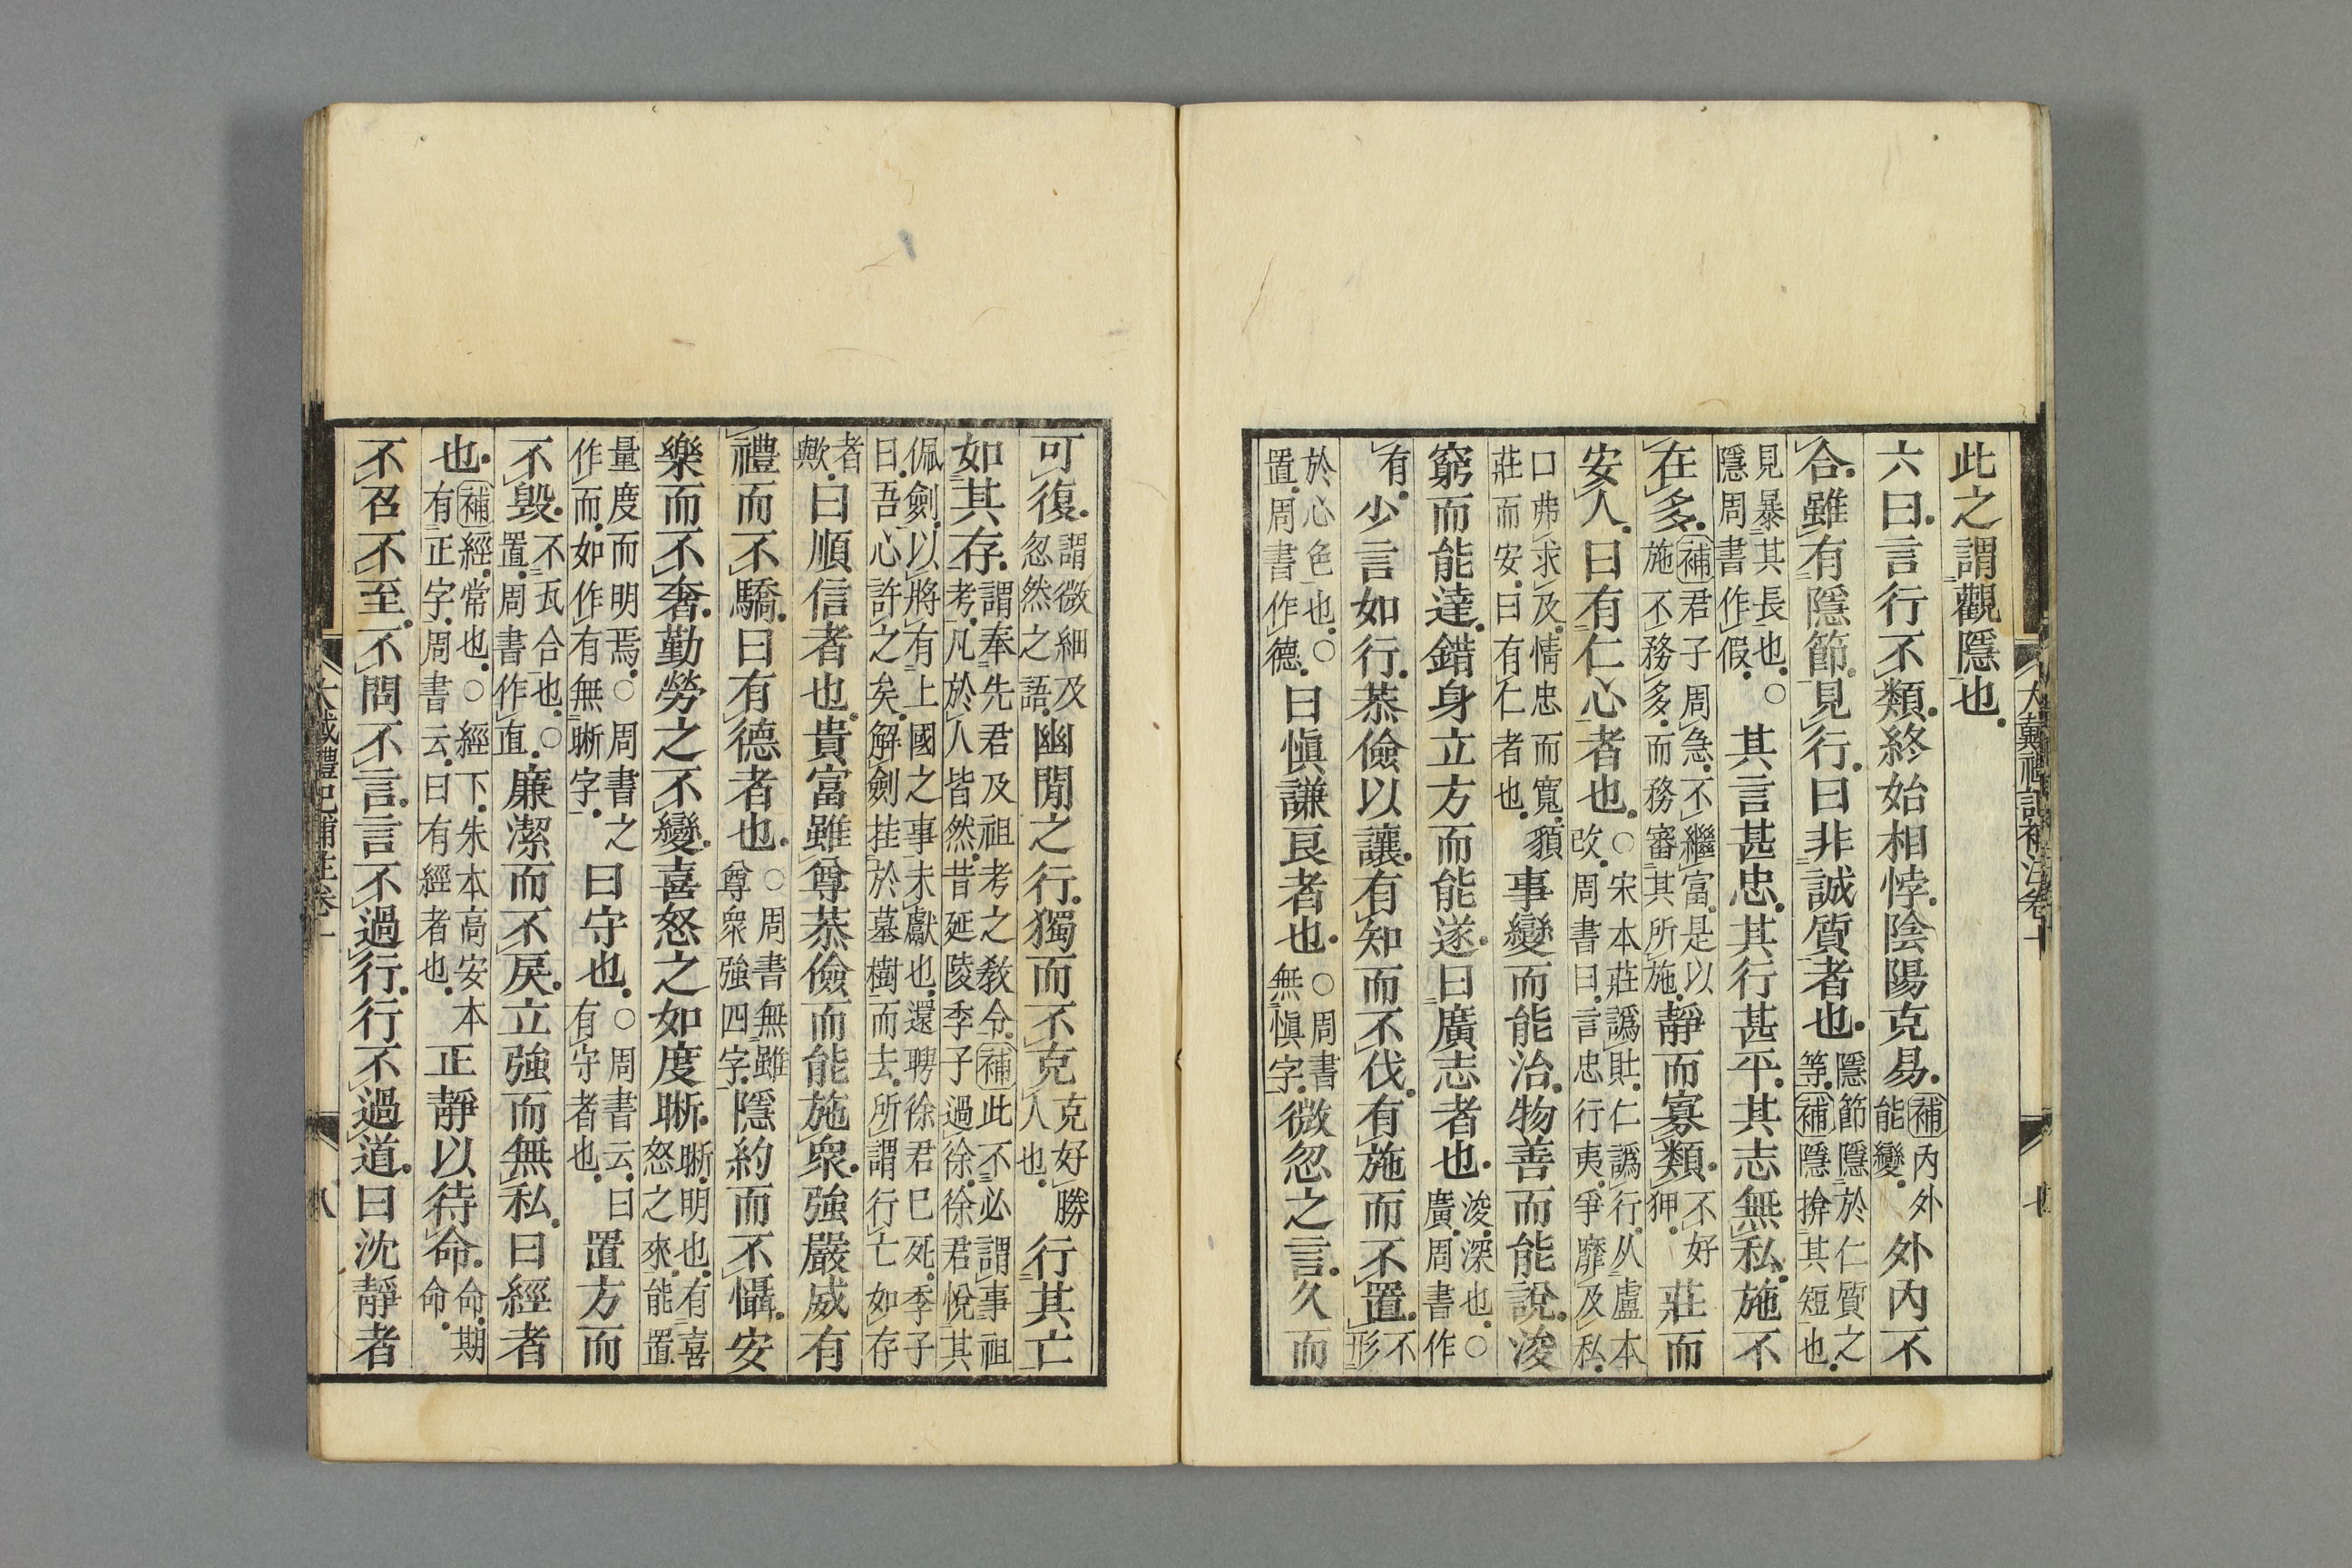 大戴禮記補注卷十 七
此之謂觀隱也
六曰言行不類終始相悖陰陽克易補內外能變外內不
合雖有隱節見行曰非誠質者也隱節隱於仁質之等補隱揜其短也
見暴其長也○隱周書作假其言甚忠其行甚平其志無私施不
在多補君子周急不繼富是以施不務多而務審其所施靜而寡類不好狎莊而
安人曰有仁心者也○宋本莊譌仁譌行从盧本改周書曰言忠行夷爭靡及私
口弗求及情忠而寬貌莊而安曰有仁者也事變而能治物善而能說浚
窮而能達錯身立方而能遂曰廣志者也浚深也○廣周書作
有少言如行恭儉以讓有知而不伐有施而不置不形
於心色也○置周書作德曰愼謙良者也○周書無愼字微忽之言久而
可復謂微細及忽然之語幽閒之行獨而不克克好勝人也行其亡
如其存謂奉先君及祖考之敎令補此不必謂事祖考凡於人皆然昔延陵季子過徐徐君悅其
佩劍以將有上國之事未獻也還聘徐君已死季子曰吾心許之矣解劍挂於墓樹而去所謂行亡如存
者歟曰順信者也貴富雖尊恭儉而能施衆強嚴威有
禮而不驕曰有德者也○周書無雖尊衆強四字隱約而不懾安
樂而不奢勤勞之不變喜怒之如度晣晣明也有喜怒之來能置
量度而明焉○周書之作而如作有無晣字曰守也○周書云曰有守者也置方而
不毀不瓦合也○置周書作直廉潔而不戾立強而無私曰經者
也補經常也○經下朱本高安本有正字周書云曰有經者也正靜以待命命期命
不召不至不問不言言不過行行不過道曰沈靜者
大戴禮記補注卷十 八